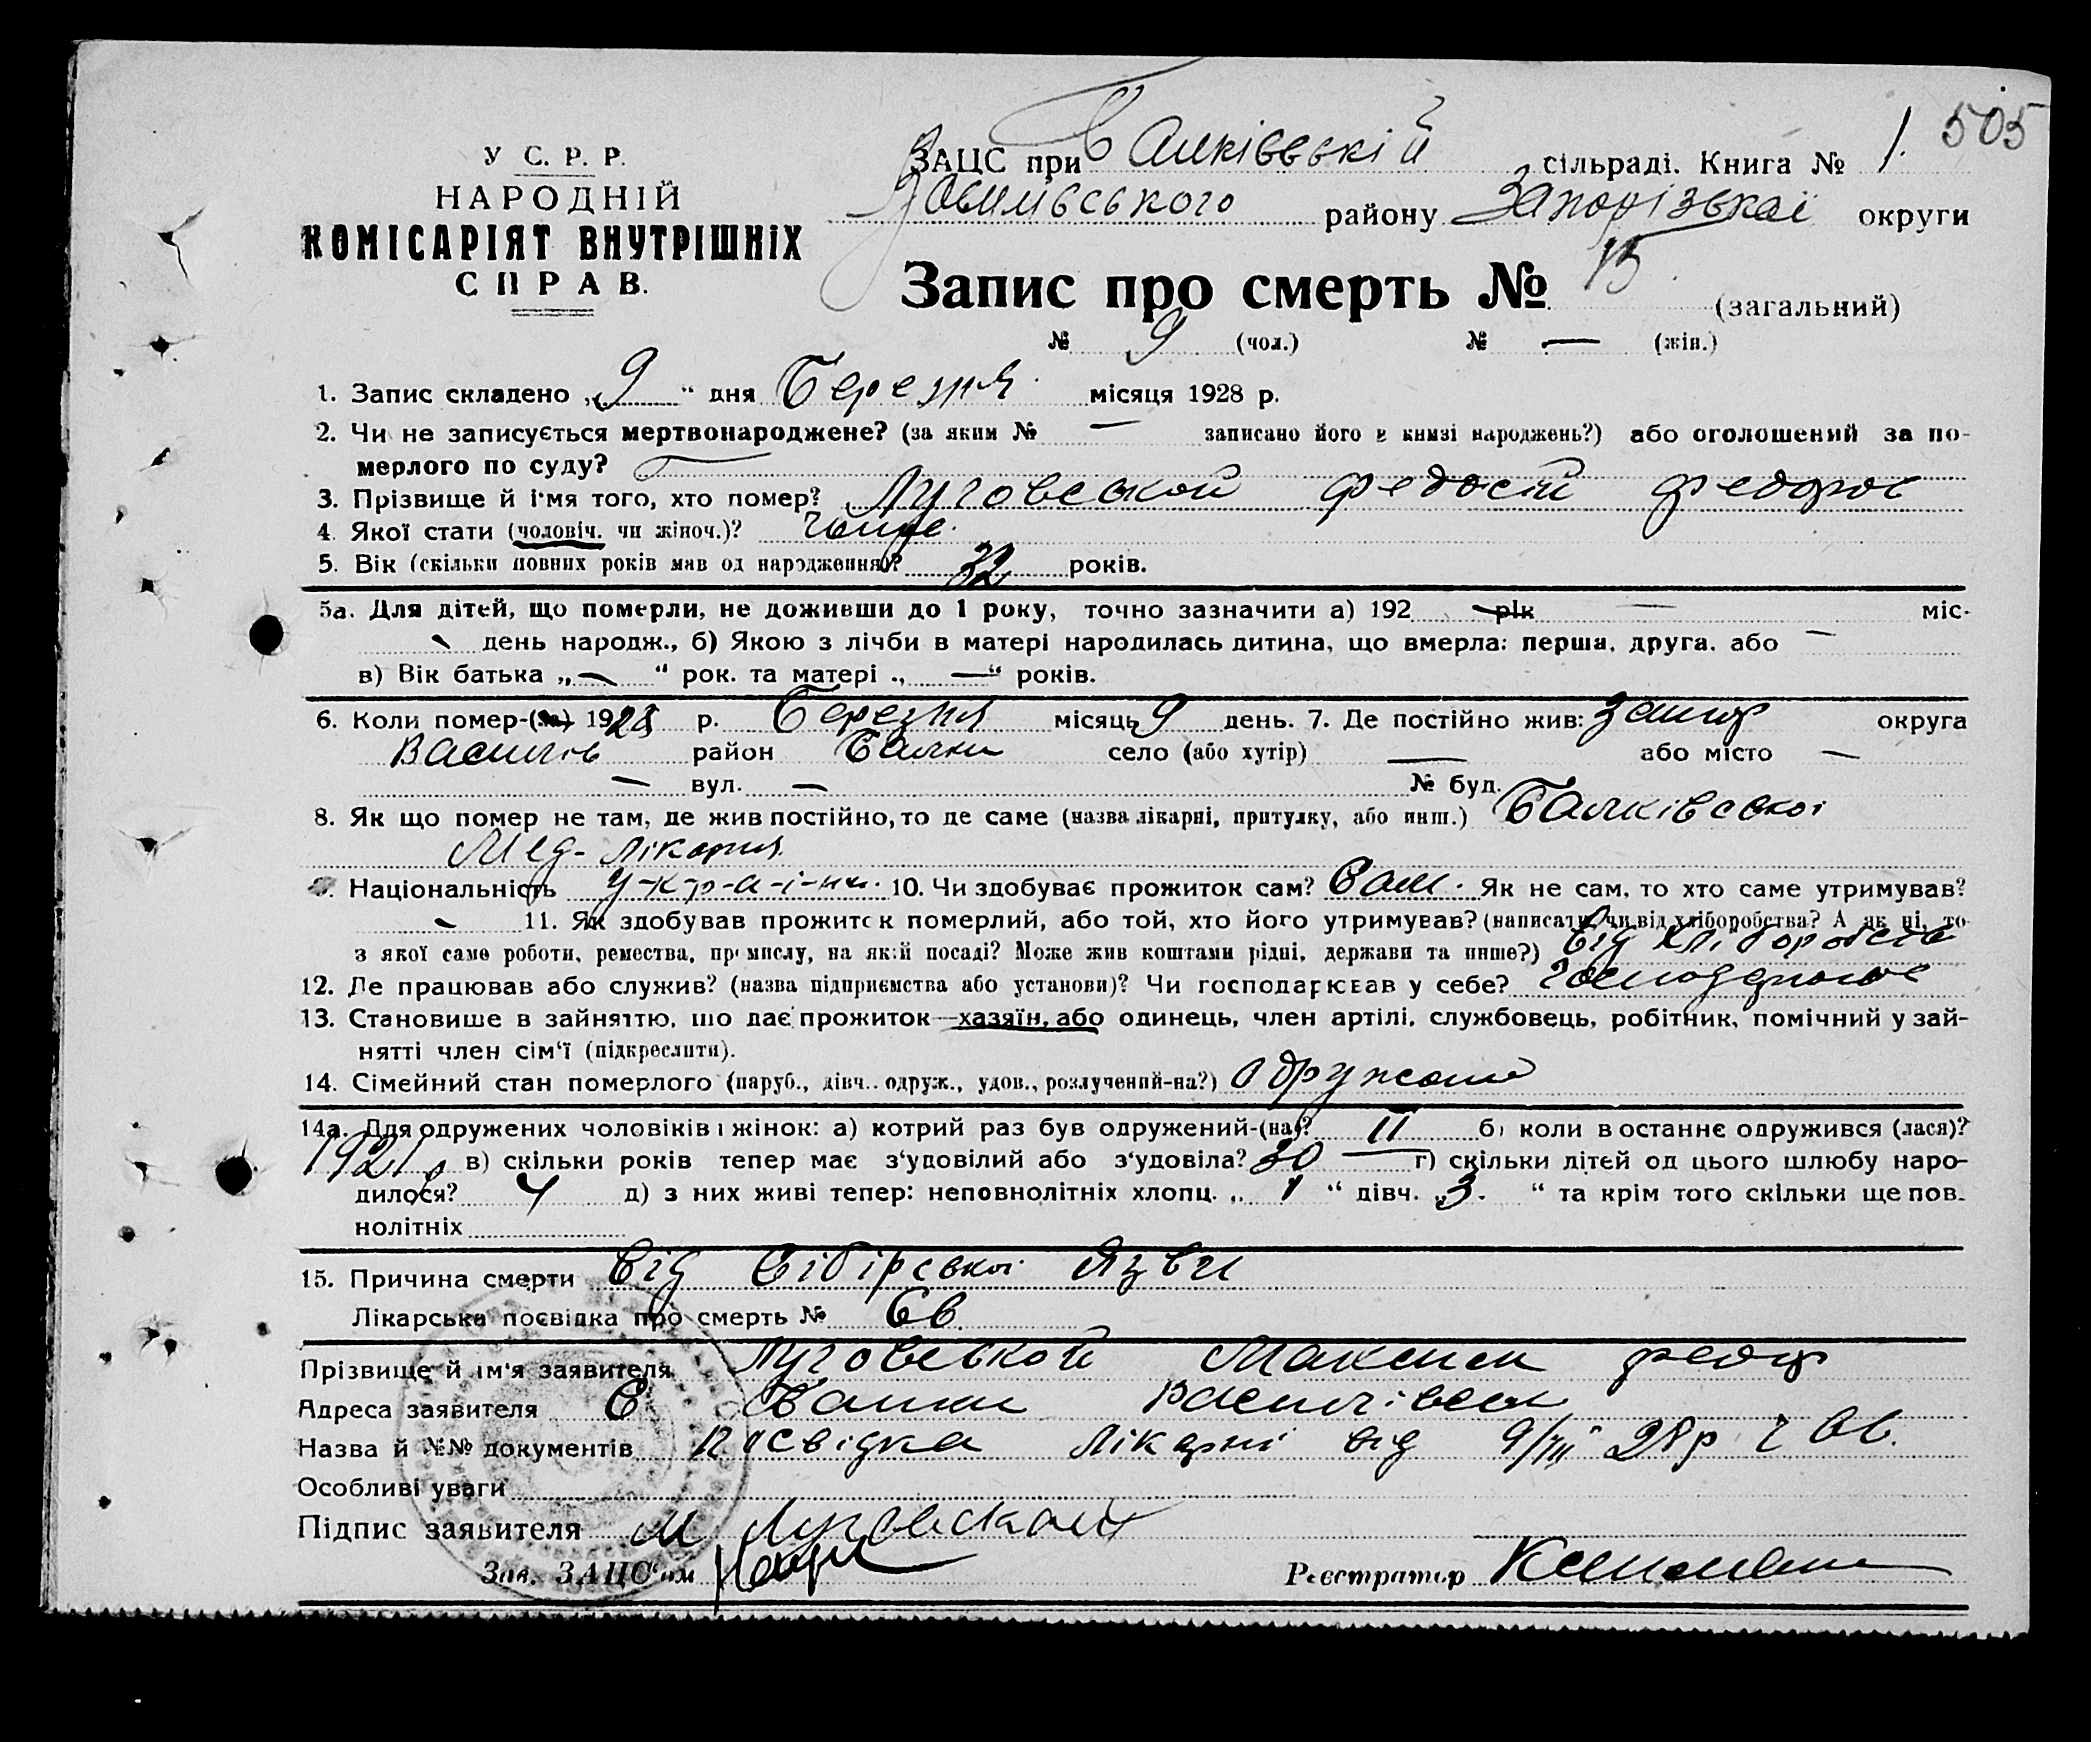 505
У С. Р. Р.
НАРОДНІЙ
КОМІСАРІЯТ ВНУТРІШНІХ
СПРАВ.
ЗАЦС при Балківській сільраді. Книга № 1.
Василівського району Запорізької округи
Запис про смерть № 15 (загальний)
№ 9 (чол.) № — (жін.)
1. Запис складено „9“ дня Березня місяця 1928 р.
2. Чи не записується мертвонароджене? (за яким № — записано його в книзі народжень?) або оголошений за по-
мерлого по суду? —
3. Прізвище й ім'я того, хто помер? Луговской Федосій Федоров
4. Якої стати (чоловіч. чи жіноч.)?
5. Вік (скільки повних років мав од народження)? 32 років.
5а. Для дітей, що померли, не доживши до 1 року, точно зазначити а) 192 рік — міс-
день народж., б) Якою з лічби в матері народилась дитина, що вмерла: перша, друга. або —
в) Вік батька „—“ рок. та матері „—“ років.
6. Коли помер-(ла) 1928 р. Березня місяць 9 день. 7. Де постійно жив: Запор округа
Василів район Балки село (або хутір) — або місто —
— вул. — № буд.
8. Як що помер не там, де жив постійно, то де саме (назва лікарні, притулку, або инш.) Балківської
Мед-лікарня
9. Національність у-к-р-а-ї-н. 10. Чи здобуває прожиток сам? Сам. Як не сам, то хто саме утримував?
— 11. Як здобував прожиток померлий, або той, хто його утримував? (написати, чи від хліборобства? А як ні, то
з якої саме роботи, ремества, промислу, на якій посаді? Може жив коштами рідні, держави та инше?) Від хліборобств
12. Де працював або служив? (назва підприємства або установи)? Чи господарював у себе?
13. Становище в зайняттю, що дає прожиток—хазяїн, або одинець, член артілі, службовець, робітник, помічний у зай-
нятті член сім'ї (підкреслити).
14. Сімейний стан померлого (паруб., дівч., одруж., удов., розлучений-на?) одружений
14а. Для одружених чоловіків і жінок: а) котрий раз був одружений-(на)? II б) коли востаннє одружився (лася)?
1921 р в) скільки років тепер має з'удовілий або з'удовіла? 30 — г) скільки дітей од цього шлюбу наро-
дилося? 4 д) з них живі тепер: неповнолітніх хлопц. „1“ дівч. „3.“ та крім того скільки ще пов-
нолітніх
15. Причина смерти Від Сібірської Язви
Лікарська посвідка про смерть №
Прізвище й ім'я заявителя Луговской Максим Федор
Адреса заявителя С Балки Василівськ
Назва й №№ документів посвідка лікарні від 9/III 28р
Особливі уваги
Підпис заявителя М Луговской
Зав. ЗАЦС'ом
Реєстратор